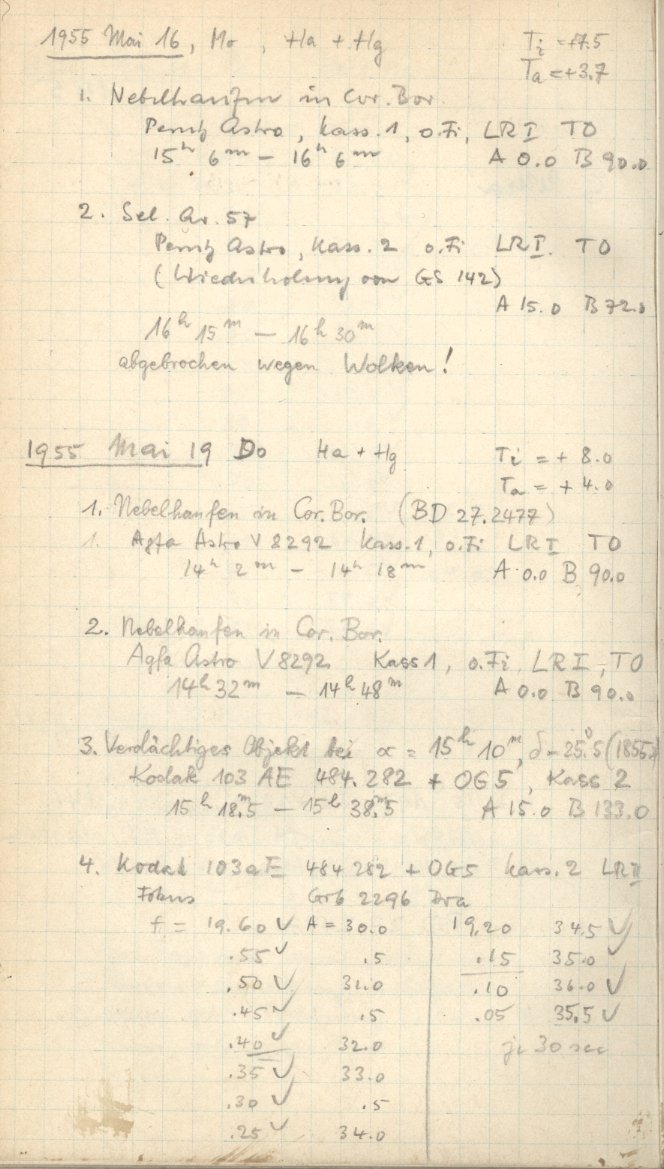 1955 Mai 16, Mo, Ha + Hg Ti = +7.5
Ta = +3.7
1. Nebelhaufen in Cor. Bor.
Perutz Astro, Kass. 1, o.Fi, LR I TO
15h 6m — 16h 6m A 0.0 B 90.0
2. Sel. Ar. 57
Perutz Astro, Kass. 2 o.Fi LR I. TO
(Wiederholung von GS 142)
A 15.0 B 72.0
16h 15m — 16h 30m
abgebrochen wegen Wolken!
1955 Mai 19 Do Ha + Hg Ti = + 8.0
Ta = + 4.0
1. Nebelhaufen in Cor. Bor. (BD 27.2477)
1. Agfa Astro V 8292 Kass. 1, o.Fi LR I TO
14h 2m — 14h 18m A 0.0 B 90.0
2. Nebelhaufen in Cor. Bor.
Agfa Astro V 8292 Kass 1, o.Fi, LR I, TO
14h 32m — 14h 48m A 0.0 B 90.0
3. Verdächtiges Objekt bei α = 15h 10m, δ - 25°.5 (1855)
Kodak 103 AE 484.282 + OG5, Kass 2
15h 18m.5 — 15h 38m.5 A 15.0 B 133.0
4. Kodak 103aE 484 282 + OG5 Kass. 2 LR II
Fokus Grb 2296 Dra
f = 19.60 ✓ A = 30.0 19.20 34.5 ✓
.55 ✓ .5 .15 35.0 ✓
.50 ✓ 31.0 .10 36.0 ✓
.45 ✓ .5 .05 35.5 ✓
.40 ✓ 32.0 je 30 sec
.35 ✓ 33.0
.30 ✓ .5
.25 ✓ 34.0